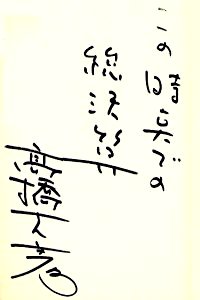 この時点での
総決算
高橋克彦